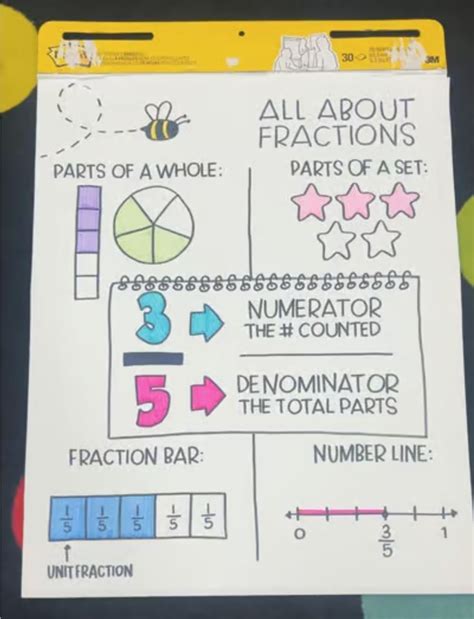 30
3M
ALL ABOUT
FRACTIONS
PARTS OF A WHOLE:
PARTS OF A SET:
3
NUMERATOR
THE # COUNTED
5
DENOMINATOR
THE TOTAL PARTS
FRACTION BAR:
1/5 1/5 1/5 1/5 1/5
UNIT FRACTION
NUMBER LINE:
0 3/5 1